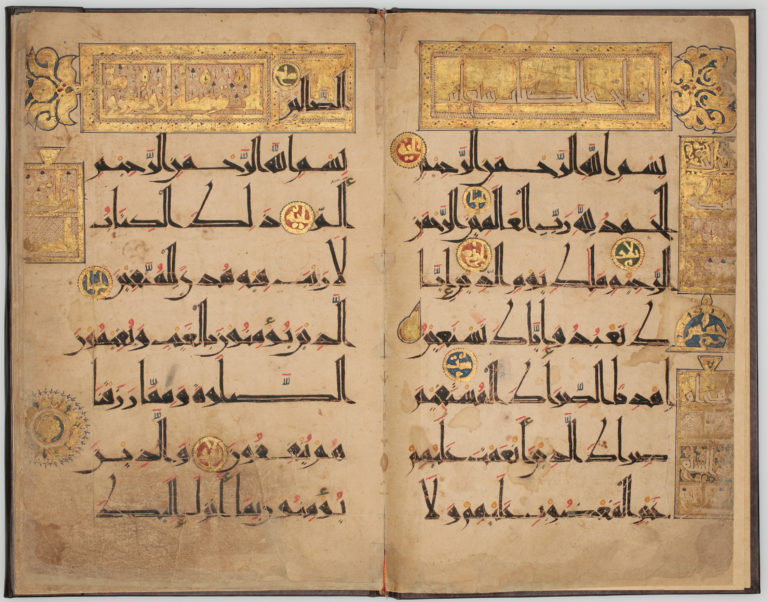 فاتحة الكتاب
بسم الله الرحمن الرحيم
الحمد لله رب العالمين الرحمن
الرحيم ملك يوم الدين إيا
ك نعبد وإياك نستعين
اهدنا الصراط المستقيم
صراط الذين أنعمت عليهم
غير المغضوب عليهم ولا
الضالين
بسم الله الرحمن الرحيم
الم ذلك الكتاب
لا ريب فيه هدى للمتقين
الذين يؤمنون بالغيب ويقيمون
الصلوة ومما رزقنا
هم ينفقون والذين
يؤمنون بما أنزل إليك